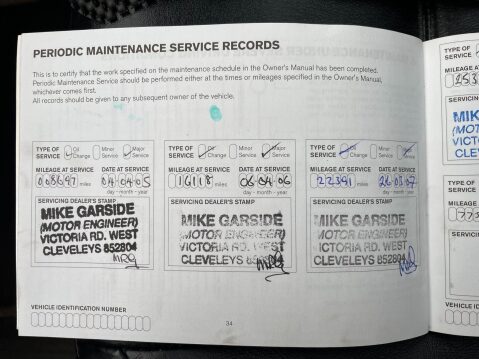 PERIODIC MAINTENANCE SERVICE RECORDS
This is to certify that the work specified on the maintenance schedule in the Owner's Manual has been completed.
Periodic Maintenance Service should be performed either at the times or mileages specified in the Owner's Manual,
whichever comes first.
All records should be given to any subsequent owner of the vehicle.
TYPE OF SERVICE Oil Change Minor Service Major Service
MILEAGE AT SERVICE DATE AT SERVICE
008697 miles 04-04-05
day - month - year
SERVICING DEALER'S STAMP
MIKE GARSIDE
(MOTOR ENGINEER)
VICTORIA RD. WEST
CLEVELEYS 852804
TYPE OF SERVICE Oil Change Minor Service Major Service
MILEAGE AT SERVICE DATE AT SERVICE
16118 miles 06-04-06
day - month - year
SERVICING DEALER'S STAMP
MIKE GARSIDE
(MOTOR ENGINEER)
VICTORIA RD. WEST
CLEVELEYS 852804
TYPE OF SERVICE Oil Change Minor Service Major Service
MILEAGE AT SERVICE DATE AT SERVICE
22391 miles 26-03-07
day - month - year
SERVICING DEALER'S STAMP
MIKE GARSIDE
(MOTOR ENGINEER)
VICTORIA RD. WEST
CLEVELEYS 852804
VEHICLE IDENTIFICATION NUMBER
34
TYPE OF
SERVICE
MILEAGE A
SERVICING
MIK
(MOT
VICT
CLEV
TYPE OF
SERVICE
MILEAGE
SERVICI
VEHICLE ID